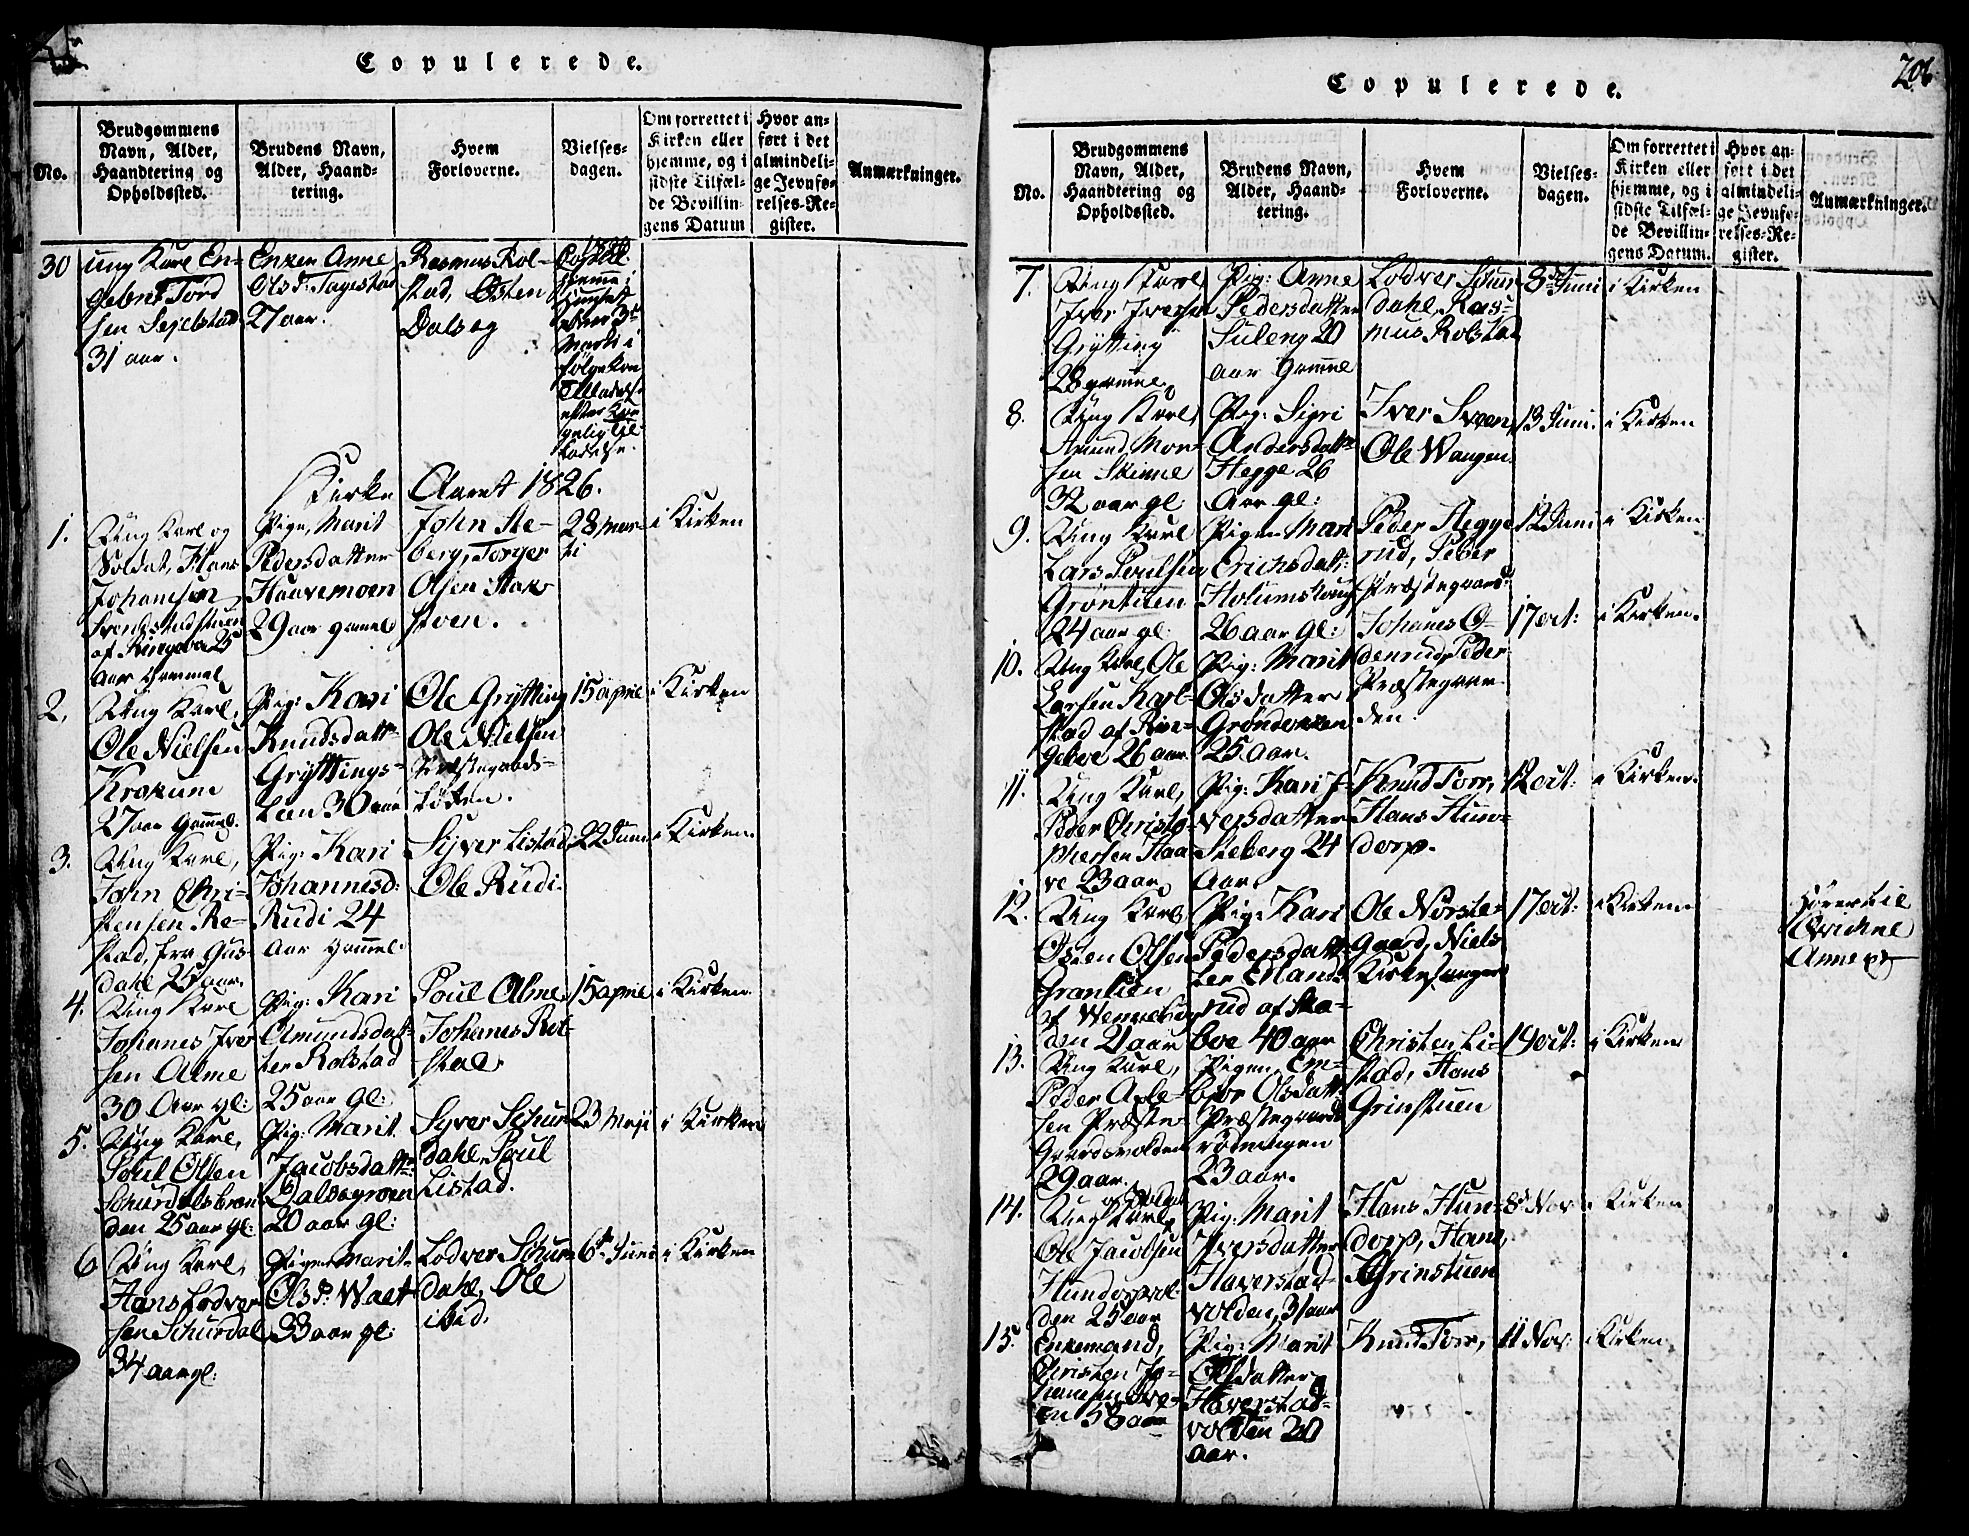 Copulerede.
No.
Brudgommens
Navn, Alder,
Haandtering og
Opholdssted.
Brudens Navn,
Alder, Haand-
tering.
Hvem
Forloverne.
Vielses-
dagen.
Om forrettet i
Kirken eller
hjemme, og i
sidste Tilfæl-
de Bevillin-
gens Datum
Hvor an-
ført i det
almindeli-
ge Jevnfø-
relses-Re-
gister.
Anmærkninger.
30
ung Karl En-
gebret Tord
sen
31 aar.
Enken Anne
Olsd: Tagestad
27 aar.
Rasmus Rol-
stad, Østen
Dalseg
hjemme i
følge
Kirke Aaret 1826.
1.
Ung Karl og
Soldat, Hans
Johansen
af Ringeboe 25
Aar Gammel
Pige, Marit
Pedersdatter
Haavemoen
29 aar gamel
John Ste-
berg, Torger
Olsen Stav
steen.
28 mar-
ti
i Kirken
2.
Ung Karl,
Ole Nielsen
Krokune
27 aar Gamel.
Pig: Kari
Knudsdatt:
Gryttings-
Lien 30 aar
Ole Grytting
Ole Nielsen
Præstegaards-
løkken.
15 april
i Kirken
3.
Ung Karl,
John Chri-
stensen Re-
stad, fra Gus-
dahl 25 aar.
Pig: Kari
Johannesd:
Rudi 24
Aar Gammel.
Syver Listad,
Ole Rudi.
22 Juni
i Kirken
4.
Ung Karl
Johanes Iver
sen Alme
30 Aar gl:
Pig: Kari
Amundsdat-
ter Rolstad
25 aar gl:
Poul Alme
Johanes Rol-
stad
15 april
i Kirken
5.
Ung Karl,
Poul Olsen
Schurdalsbraen
den 25 aar gl:
Pig: Marit
Jacobsdatt:
Dalsegroen
20 aar gl:
Syver Schur
dahl, Poul
Listad.
23 Maji
i Kirken
6
Ung Karl,
Hans Lodver
sen Schurdal
34 aar gl:
Pigen Marit
Olsd: Wolt
33 aar gl:
Lodver Schur
dahl, Ole
ibid.
6te Juni
i Kirken
206
Copulerede.
No.
Brudgommens
Navn, Alder,
Haandtering og
Opholdssted.
Brudens Navn,
Alder, Haand-
tering.
Hvem
Forloverne.
Vielses-
dagen.
Om forrettet i
Kirken eller
hjemme, og i
sidste Tilfæl-
de Bevillin-
gens Datum.
Hvor an-
ført i det
almindeli-
ge Jevnfø-
relses-Re-
gister.
Anmærkninger.
7.
Ung Karl
Iver Iversen
Grytting
28 gamel
Pig: Anne
Pedersdatter
Suleng 20
aar Gamel
Lodver Schur
dahl, Ras-
mus Rolstad
8de Juni
i Kirken
8.
Ung Karl,
Amund Mor-
sen Skinne
32 aar gl:
Pig: Sigri
Andersdatte
Hegge 26
Aar gl:
Iver Sveen,
Ole Wangen
13 Juni
i Kirken
9.
Ung Karl
Lars Poulsen
Grøntuen
24 aar gl:
Pigen Mari
Erichsdatt:
Holumshaug
26 aar gl:
Peder Hegge
rud, Peder
Præstegaard:
12 Juni
i Kirken
10.
Ung Karl, Ole
Larsen Kart-
stad af Rin-
geboe 26 aar
Pig: Marit
Olsdatter
Grønderen
25 aar.
Johanes O-
denrud, Peder
Præstegaar-
den.
17 oct:
i Kirken.
11.
Ung Karl,
Peder Christo-
phersen Haa
ve 23 aar
Pig: Kari I-
versdatter
Steberg 24
Aar
Knud Torr,
Hans Hun-
dorp.
12 oct:
i Kirken.
12.
Ung Karl
Østen Olsen
Granlien
af Wenneberg
den 21 aar
Pig: Kari
Pedersdatt-
ter
rud af Sta-
boe 40 aar
Ole Nørste-
gaard, Niels
Kirkesanger
17 oct:
i Kirken
hører til
Annext
13.
Ung Karl,
Peder Axle-
sen Præste-
Gaardsvolden
29 aar.
Pigen Em-
bjør Olsdatt:
Præstegaards
rødningen
23 aar.
Christen Li-
stad, Hans
Grinstuen
19 oct:
i Kirken
14.
Ung Karl og Soldat
Ole Jacobsen
Hundorpvol-
den 25 aar
Pig: Marit
Iversdatter
Haverstad-
volden, 31 aar
Hans Hun-
dorp, Hans
Grinstuen
8de Nov
i Kirken
15.
Enkemand,
Christen Jo-
hansen
58 aar
Pig: Marit
Olsdatter
Haverstad-
volden 20
aar.
Knud Torr,
11 Nov:
i Kirken